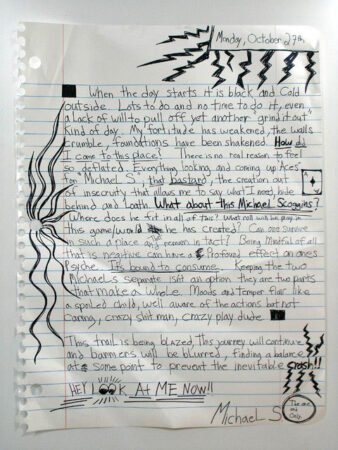 Monday, October 27th
When the day starts it is black and cold
outside. Lots to do and no time to do it, even
a lack of will to pull off yet another "grind it out"
kind of day. My fortitude has weakened, the walls
crumble, foundations have been shaken. How did
I come to this place! There is no real reason to feel
so deflated. Everything looking and coming up Aces
for "Michael S", that bastard, the creation out
of insecurity that allows me to say what I need, hide
behind and loath. What about this Michael Scoggins?
Where does he fit in all of this? What roll will he play in
this game/world he has created? Can one survive
in such a place and remain in tact? Being Mindful of all
that is negitive can have a profound effect on ones
Psyche. It's bound to consume. Keeping the two
Michaels separate isn't an option they are two parts
that make a whole. Moods and temper flair like
a spoiled child, well aware of the actions but not
caring, crazy shit man, crazy play dude.
This trail is being blazed, this journey will continue
and banners will be blurred, finding a balance
at some point to prevent the inevitable crash!!
HEY LOOK At ME NOW!!
Michael S.
The one
and
Only.